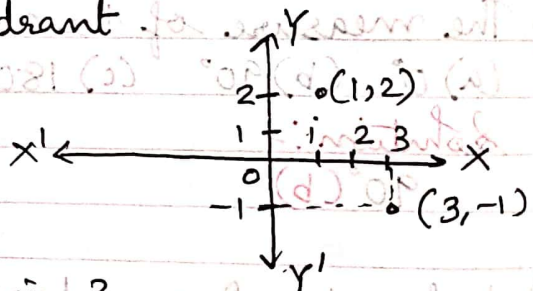 drant.
Y
2 (1,2)
1 1 2 3
X' X
0
-1 (3,-1)
Y'